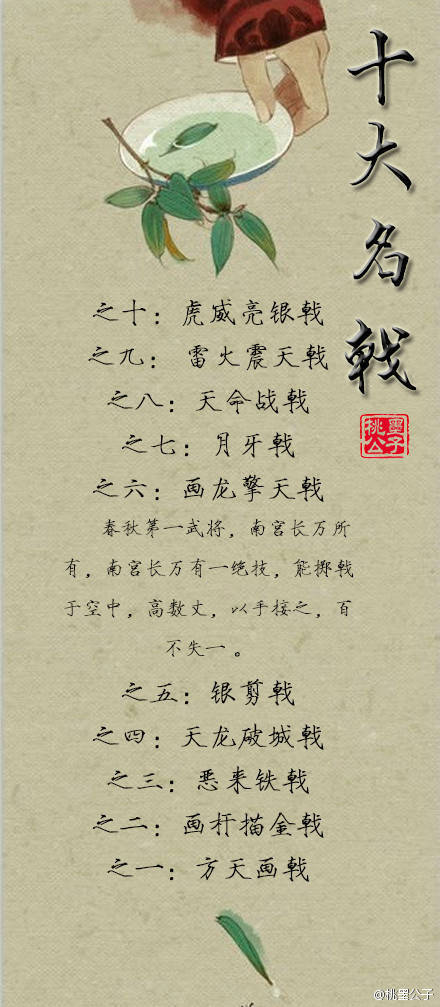 十大名戟
桃墨
公子
之十：虎威亮银戟
之九：雷火震天戟
之八：天命战戟
之七：月牙戟
之六：画龙擎天戟
春秋第一武将，南宫长万所
有，南宫长万有一绝技，能掷戟
于空中，高数丈，以手接之，百
不失一。
之五：银剪戟
之四：天龙破城戟
之三：恶来铁戟
之二：画杆描金戟
之一：方天画戟
@桃墨公子